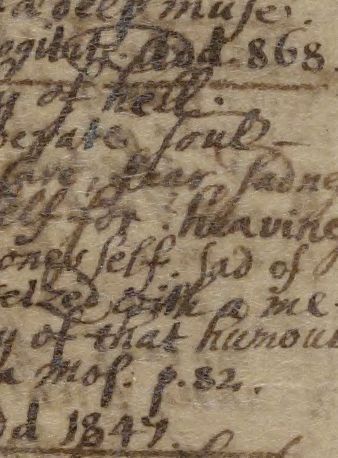 a deep muse.
ogitat. Add. 868.
y of hell.
perate soul
fear, sadne
elf for heavine
ones self. sad of
seized with a me-
y of that humour
a mos. p. 82.
dd 1847.